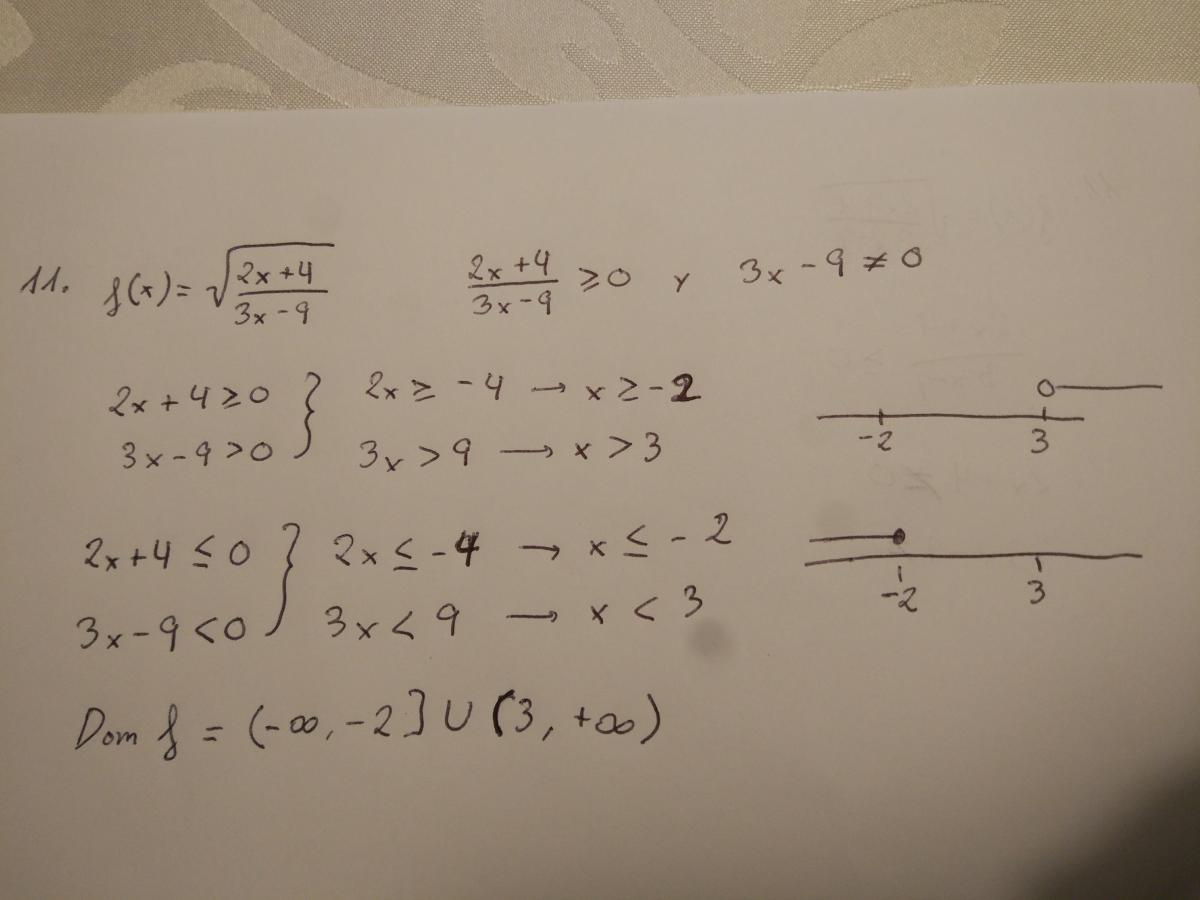 11. f(x) = √((2x+4)/(3x-9)) (2x+4)/(3x-9) ≥ 0 y 3x - 9 ≠ 0
2x + 4 ≥ 0 } 2x ≥ -4 → x ≥ -2
3x - 9 > 0 } 3x > 9 → x > 3
-2 3
2x + 4 ≤ 0 } 2x ≤ -4 → x ≤ -2
3x - 9 < 0 } 3x < 9 → x < 3
-2 3
Dom f = (-∞, -2] ∪ (3, +∞)